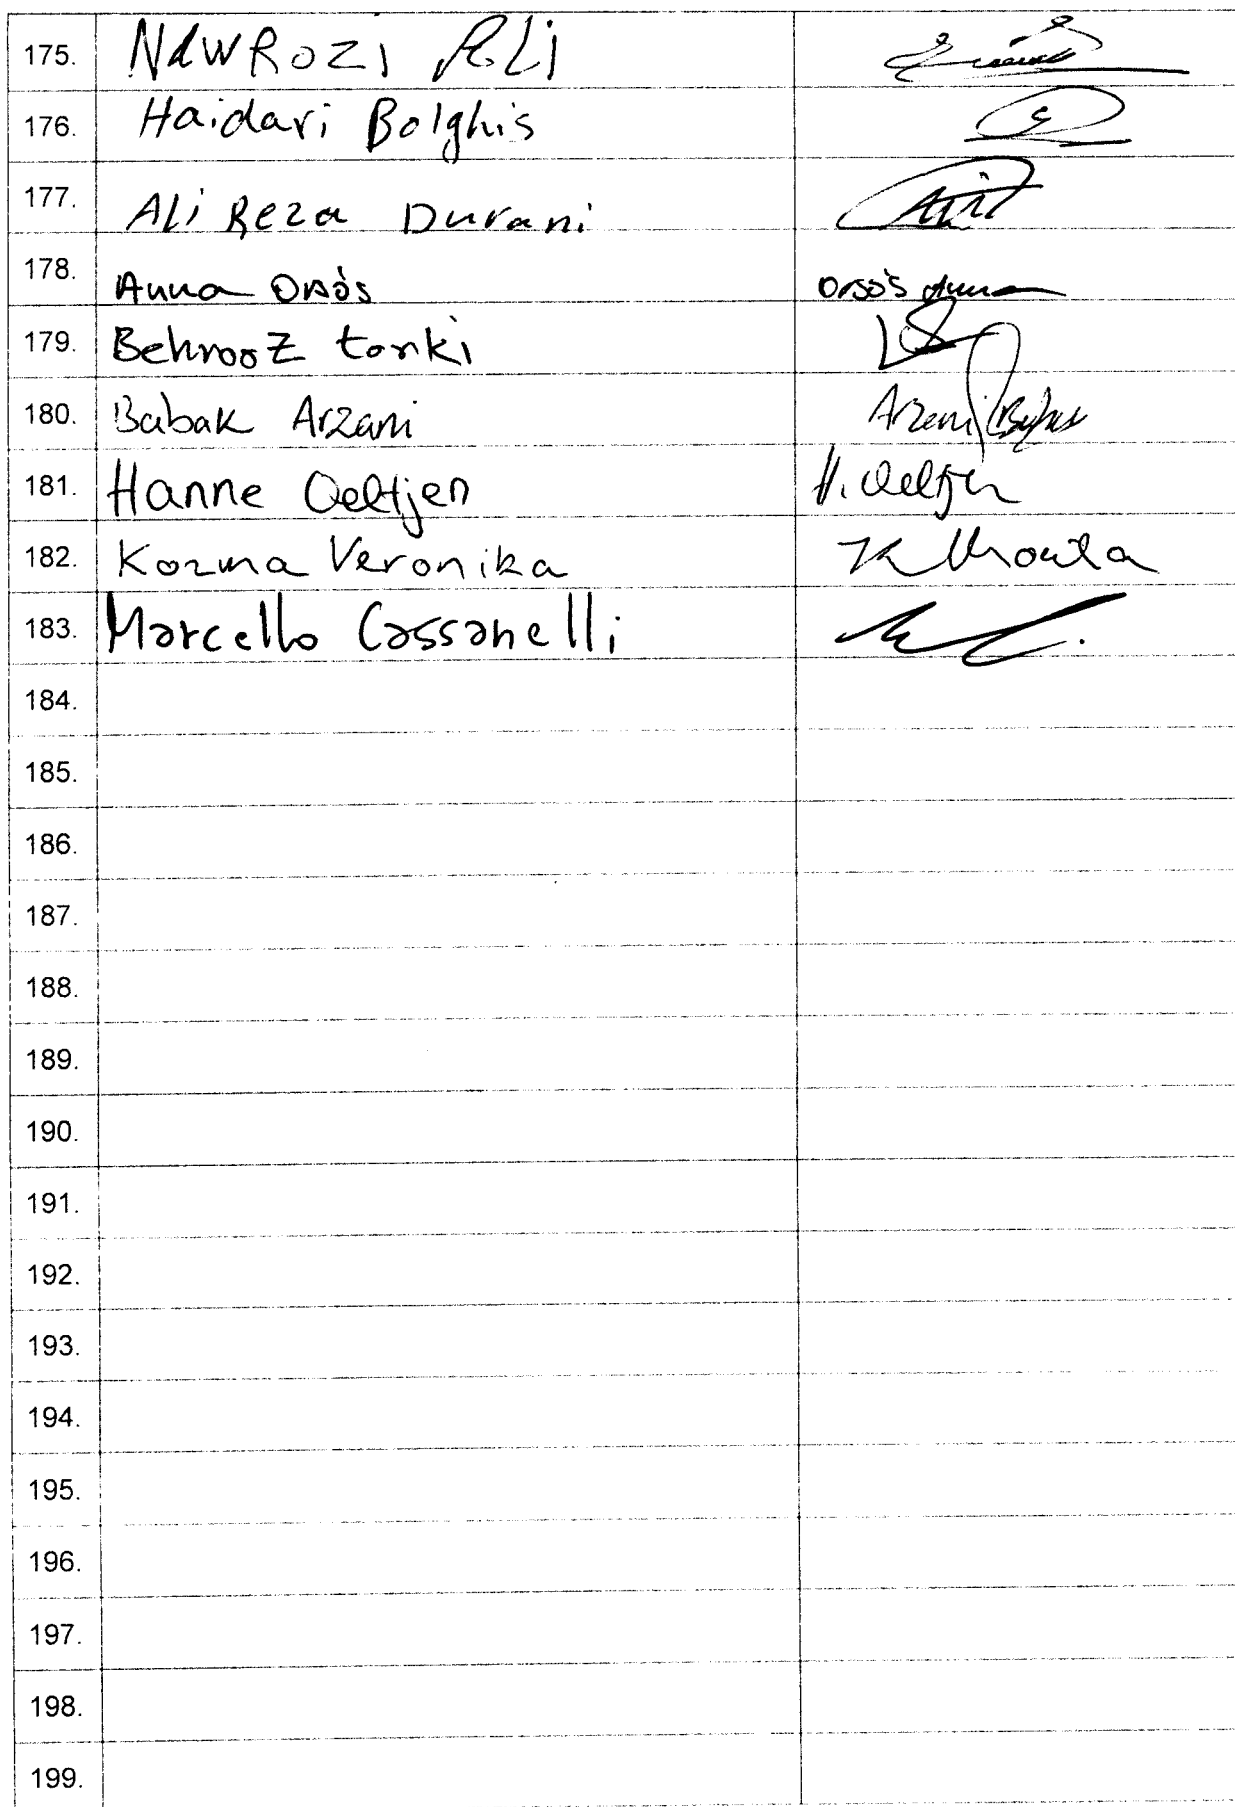 175. Nawrozi Ali
176. Haidari Bolghis
177. Ali Reza Durani
178. Anna Orsós Orsós Anna
179. Behrooz torki
180. Babak Arzani Arzani Babak
181. Hanne Oeltjen H. Oeltjen
182. Kozma Veronika
183. Marcello Cassanelli
184.
185.
186.
187.
188.
189.
190.
191.
192.
193.
194.
195.
196.
197.
198.
199.